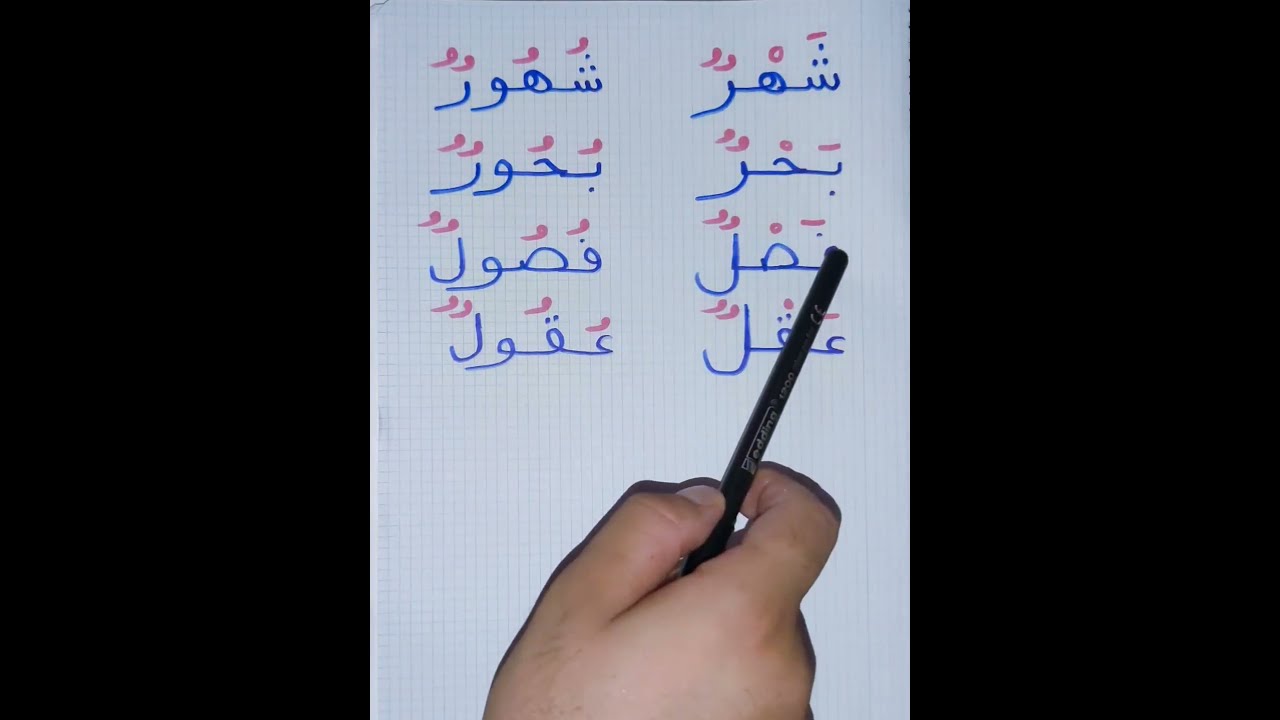 شَهْرٌ شُهُورٌ
بَحْرٌ بُحُورٌ
فَصْلٌ فُصُولٌ
عَقْلٌ عُقُولٌ
edding 1200